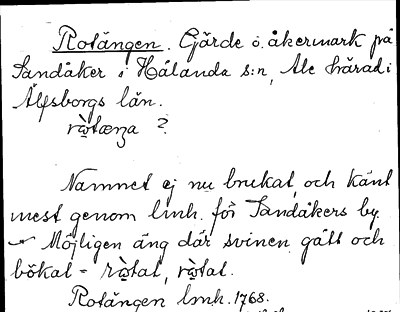 Rotängen. Gjärde o. åkermark på
Sandåker i Hålanda s:n, Ale härad i
Älfsborgs län.
ròtæŋa ?
Namnet ej nu brukat, och känt
mest genom lmh. för Sandåkers by.
Möjligen äng där svinen gått och
bökat - ròtat, ròtat.
Rotängen lmh. 1768.